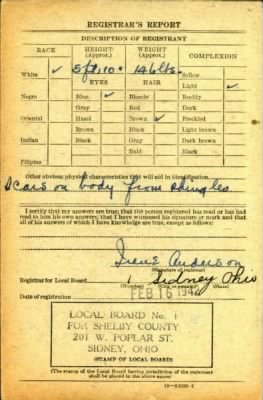 REGISTRAR'S REPORT
DESCRIPTION OF REGISTRANT
RACE HEIGHT (Approx.) WEIGHT (Approx.) COMPLEXION
White ✓ 5 ft. 10" 146 lbs. Sallow
EYES HAIR Light ✓
Negro Blue ✓ Blonde Ruddy
Gray Red Dark
Oriental Hazel Brown ✓ Freckled
Brown Black Light brown
Indian Black Gray Dark brown
Bald Black
Filipino
Other obvious physical characteristics that will aid in identification
Scars on body from shingles
I certify that my answers are true; that the person registered has read or has had
read to him his own answers; that I have witnessed his signature or mark and that
all of his answers of which I have knowledge are true, except as follows:
Irene Anderson
(Signature of registrar)
Registrar for Local Board 1 Sidney Ohio
(Number)
Date of registration FEB 16 1942
LOCAL BOARD No. 1
FOR SHELBY COUNTY
201 W. POPLAR ST.
SIDNEY, OHIO
(STAMP OF LOCAL BOARD)
(The stamp of the Local Board having jurisdiction of the registrant
shall be placed in the above space)